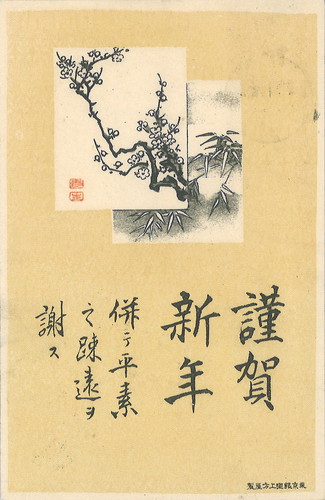 謹賀
新年
併テ平素
之踈遠ヲ
謝ス
東京銀座上方屋製